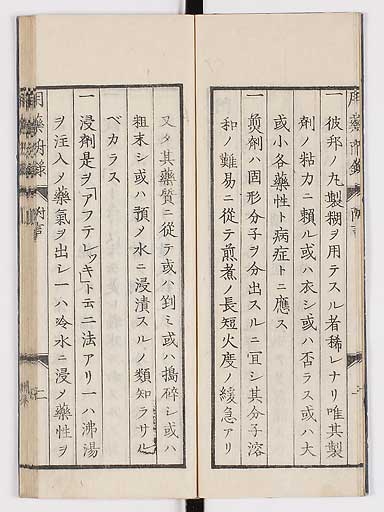 一 彼邦ノ丸製糊ヲ用テスル者稀レナリ唯其製
剤ノ粘力ニ頼ル或ハ衣シ或ハ否ラス或ハ大
或小各藥性ト病症トニ應ス
一 煎劑ハ固形分子ヲ分出スルニ宜シ其分子溶
和ノ難易ニ從テ煎煮ノ長短火度ノ緩急アリ
又タ其藥質ニ從テ或ハ剉ミ或ハ搗碎シ或ハ
粗末シ或ハ預メ水ニ浸漬スルノ類知ラサル
ベカラス
一 浸劑是ヲ「アフテレッキ」ト云二法アリ一ハ沸湯
ヲ注入メ藥氣ヲ出シ一ハ冷水ニ浸メ藥性ヲ
用藥附錄
二